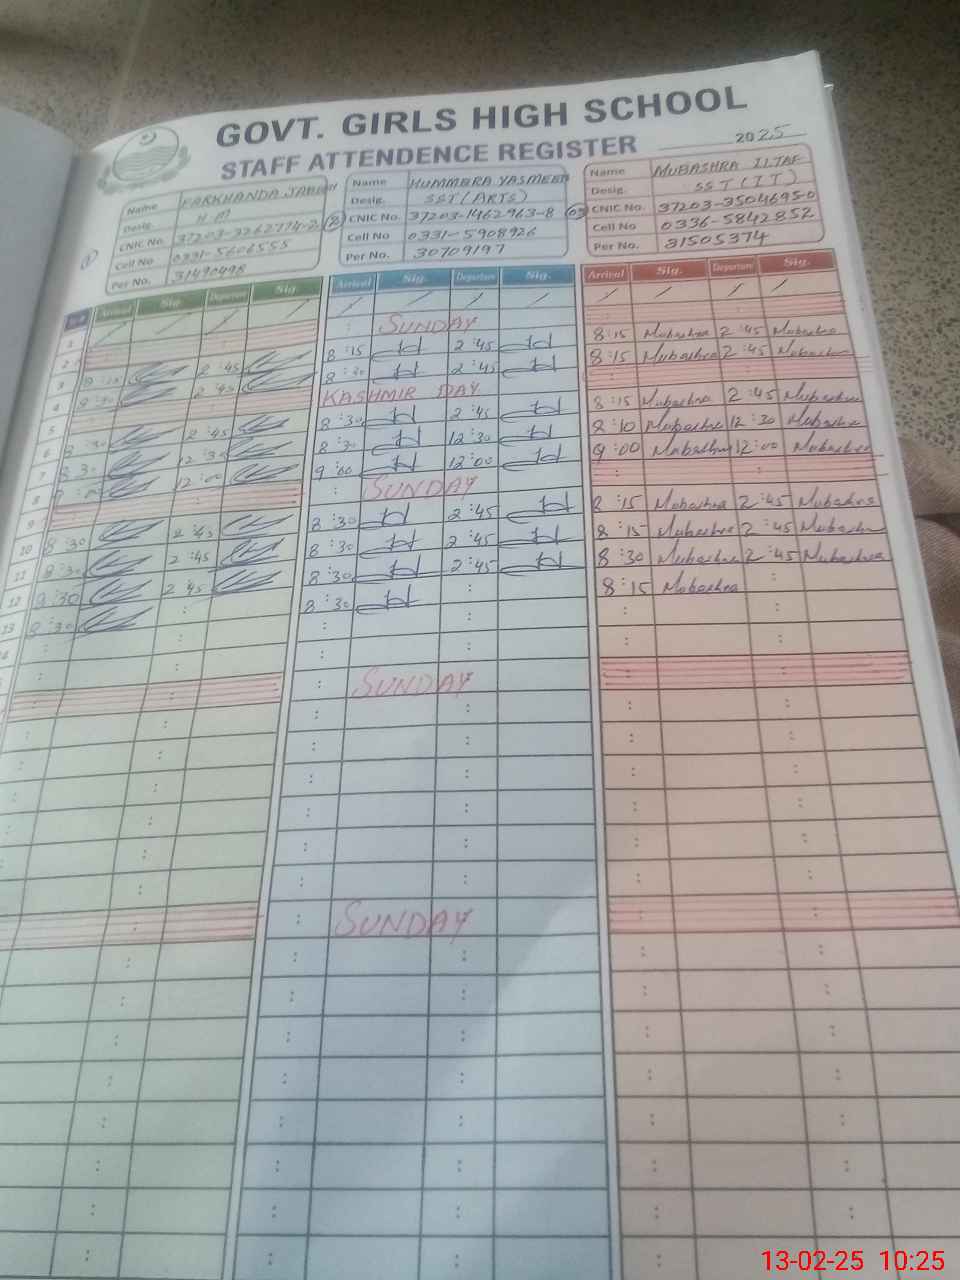 GOVT. GIRLS HIGH SCHOOL
STAFF ATTENDENCE REGISTER 2025
Name FARKHANDA
Desig. H.M
CNIC No.
Cell No 0331-5606555
Per No. 31490498
Name HUMMERA YASMEEN
Desig. SST (ARTS)
CNIC No. 37203-1462963-8
Cell No 0331-5908926
Per No. 30709197
Name MUBASHRA ILTAF
Desig. SST (IT)
CNIC No. 37203-3504695-0
Cell No 0336-5842852
Per No. 31505374
Arrival Sig. Departure Sig. Arrival Sig. Departure Sig. Arrival Sig. Departure Sig.
1
2 SUNDAY
3 2:45 8:15 2:45 8:15 Mubashra 2:45 Mubashra
4 8:30 2:45 8:30 2:45 8:15 Mubashra 2:45 Mubashra
5 KASHMIR DAY
6 8:30 2:45 8:30 2:45 8:15 Mubashra 2:45 Mubashra
7 8:30 12:30 8:30 12:30 8:10 Mubashra 12:30 Mubashra
8 9:00 12:00 9:00 12:00 9:00 Mubashra 12:00 Mubashra
9 SUNDAY
10 8:30 2:45 8:30 2:45 8:15 Mubashra 2:45 Mubashra
11 8:30 2:45 8:30 2:45 8:15 Mubashra 2:45 Mubashra
12 8:30 2:45 8:30 2:45 8:30 Mubashra 2:45 Mubashra
13 8:30 8:30 8:15 Mubashra
SUNDAY
SUNDAY
13-02-25 10:25